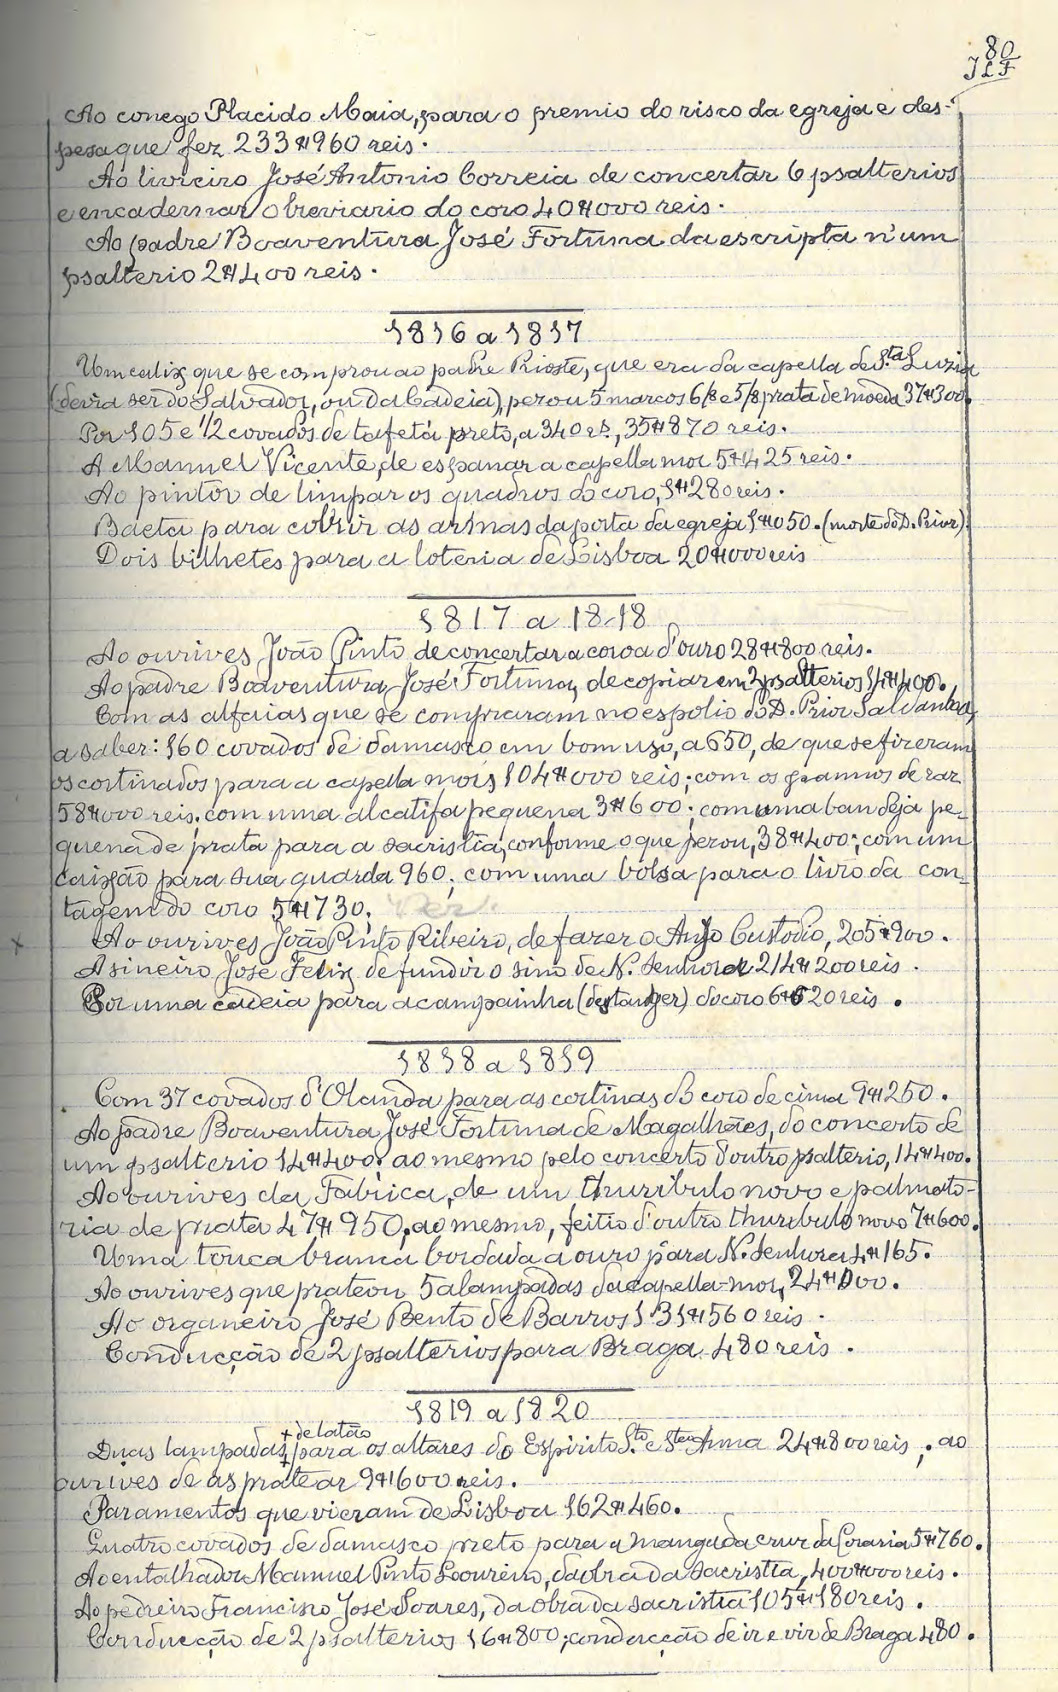 80
JLF
Ao conego Placido Maia, para o premio do risco da egreja e des-
peza que fez 233$960 reis.
Ao livreiro José Antonio Correia de concertar 6 psalterios
e encadernar o breviario do coro 40$000 reis.
Ao padre Boaventura José Fortuna da escripta n'um
psalterio 2$400 reis.
1816 a 1817
Um calix que se comprou ao padre que era da capella de S.ta Luzia
(devia ser do Salvador, ou da Cadeia), pezou 5 marcos 6/8 e 5/8 prata de moeda 37$300.
Por 105 e 1/2 covados de tafetá preto, a 340 rs, 35$870 reis.
A Manuel Vicente, de espanar a capella mor 5$425 reis.
Ao pintor de limpar os quadros do coro, 1$280 reis.
Baeta para cobrir as armas da porta da egreja 1$050. (morte do D. Prior).
Dois bilhetes para a loteria de Lisboa 20$000 reis
1817 a 1818
Ao ourives João Pinto de concertar a coroa d'ouro 28$800 reis.
Ao padre Boaventura José Fortuna, de copiar em 2 psalterios 14$400.
Com as alfaias que se compraram no espolio do D. Prior Saldanha,
a saber: 160 covados de damasco em bom uso, a 650, de que se fizeram
os cortinados para a capella mor, 104$000 reis; com os pannos de raz
58$000 reis; com uma alcatifa pequena 3$600; com uma bandeja pe-
quena de prata para a sacristia, conforme o que pezou, 38$400; com um
caixão para sua guarda 960; com uma bolsa para o livro da con-
tagem do coro 5$730.
x Ao ourives João Pinto Ribeiro, de fazer o Anjo Custodio, 205$900.
A sineiro José Felix de fundir o sino de N. Senhora 214$200 reis.
Por uma cadeia para a campainha (de tanger) do coro 6$520 reis.
1818 a 1819
Com 37 covados d'Olanda para as cortinas do coro de cima 9$250.
Ao padre Boaventura José Fortuna de Magalhães, do concerto de
um psalterio 14$400; ao mesmo pelo concerto d'outro psalterio, 14$400.
Ao ourives da Fabrica, de um thuribulo novo e palmato-
ria de prata 47$950, ao mesmo, feitio d'outro thuribulo novo 7$600.
Uma touca branca bordada a ouro para N. Senhora 4$165.
Ao ourives que prateou 5 alampadas da capella-mor, 24$000.
Ao organeiro José Bento de Barros 131$560 reis.
Conducção de 2 psalterios para Braga 480 reis.
1819 a 1820
+ de latão
Duas lampadas + para os altares do Espirito S.to e S.ta Anna 24$800 reis; ao
ourives de as pratear 9$600 reis.
Paramentos que vieram de Lisboa 162$460.
Quatro covados de damasco preto para a manga da cruz da Coraria 5$760.
Ao entalhador Manuel Pinto Loureiro, da obra da sacristia, 400$000 reis.
Ao pedreiro Francisco José Soares, da obra da sacristia 105$180 reis.
Conducção de 2 psalterios 16$800; conducção de ir e vir de Braga 480.